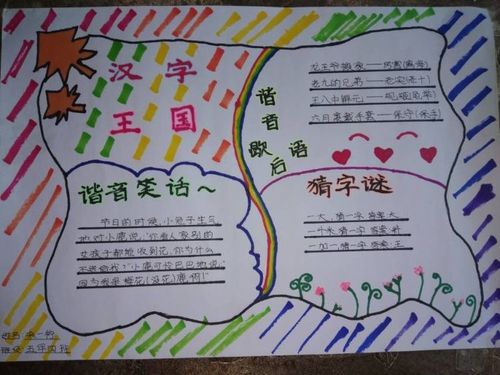 汉字
王国
谐音
歇后语
龙王爷搬家——厉害(离海)
老九的兄弟——老实(老十)
王八中解元——规矩(龟举)
六月里戴手套——保守(保手)
谐音笑话～
节日的时候,小兔子生气
地对小鹿说:"你看人家别的
女孩子都能收到花,你为什么
不送给我?"小鹿可怜巴巴地说:"
因为我是梅花(没花)鹿啊!"
猜字谜
一大,猜一字 答案:天
一个米 猜一字 答案:
一加一,猜一字 答案:王
姓名:
班级:五年四班